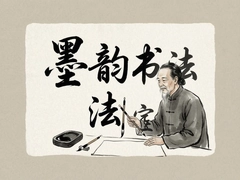 墨韵书法
法室